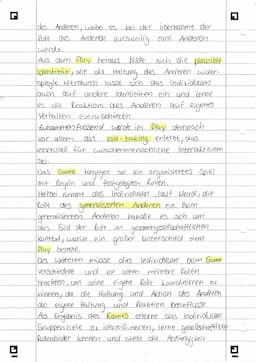 des Anderen, wobei es bei der Übernahme der
Rolle des Anderen kurzweilig zum Anderen
werde.
Aus dem Play heraus bilde sich die
Identität, die die Haltung des Anderen wider-
spiegle. Weiterhin lasse sich das Individuum
auch auf andere Identitäten ein und lerne
es die Reaktion des Anderen auf eigenes
Verhalten einzuschätzen.
Zusammenfassend werde im Play demnach
vor allem das role-taking erlernt, das
essenziell für zwischenmenschliche Interaktionen
sei.
Das Game hingegen sei ein organisiertes Spiel
mit Regeln und festgelegten Rollen.
Hierbei nimmt das Individuum, laut Mead, die
Rolle des generalisierten Anderen ein. Beim
generalisierten Anderen handle es sich um
das Bild der Rolle im gesamtgesellschaftlichen
Kontext, worin ein großer Unterschied zum
Play bestehe.
Des Weiteren müsse das Individuum beim Game
verschiedene und vor allem mehrere Rollen
beachten, um seine eigene Rolle koordinieren zu
können, da die Haltung und Aktion des Anderen
die eigene Haltung und Reaktion beeinflusse.
Als Ergebnis des Games erlerne das Individuum
Gruppenziele zu identifizieren, lerne gesellschaftliche
Rollenbilder kennen und stelle die